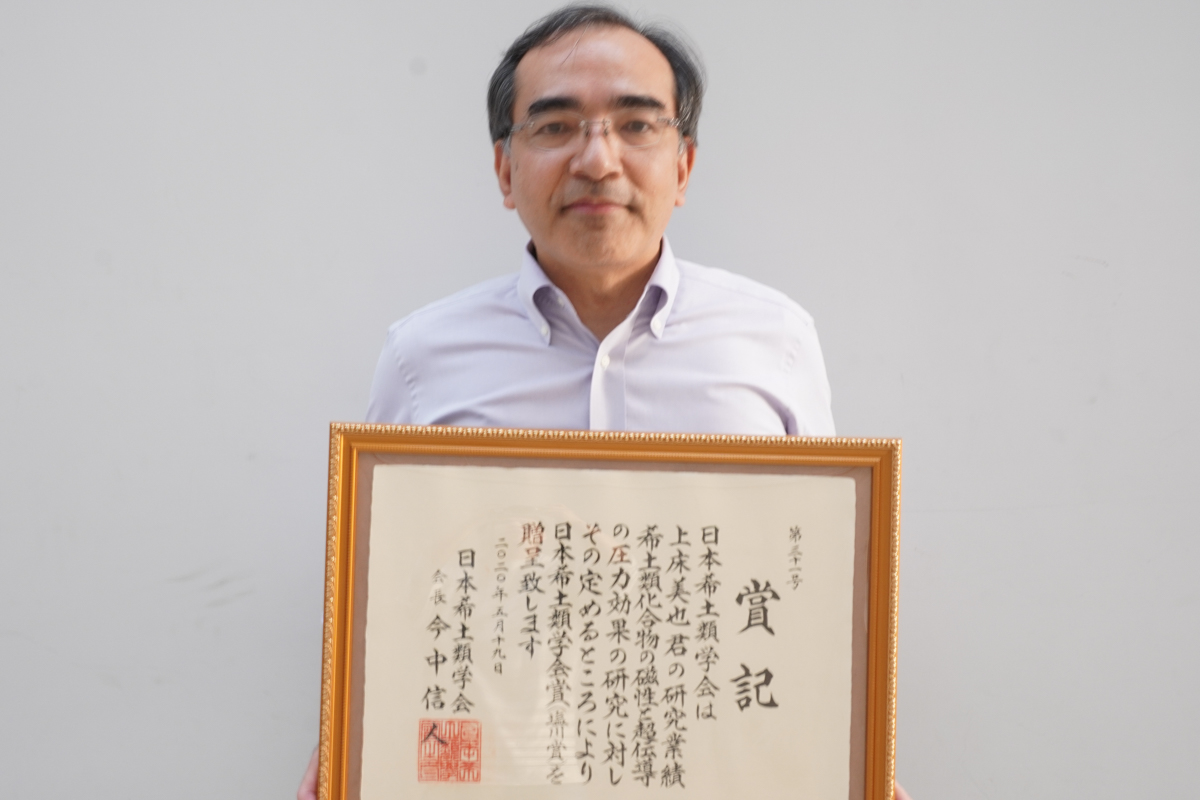 第三十一号
賞記
日本希土類学会は
上床美也君の研究業績
希土類化合物の磁性と超伝導
の圧力効果の研究に対し
その定めるところにより
日本希土類学会賞(塩川賞)を
贈呈致します
二〇二〇年五月十九日
日本希土類学会
会長 今中信人